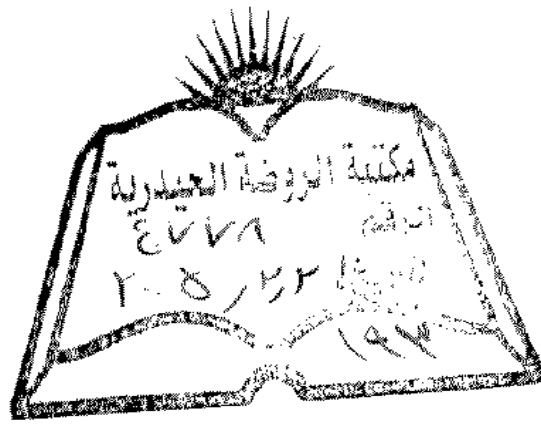 مكتبة الروضة الحيدرية
الرقم ٤٧٧٨
٢٠٥ر٢٢
١٩٣